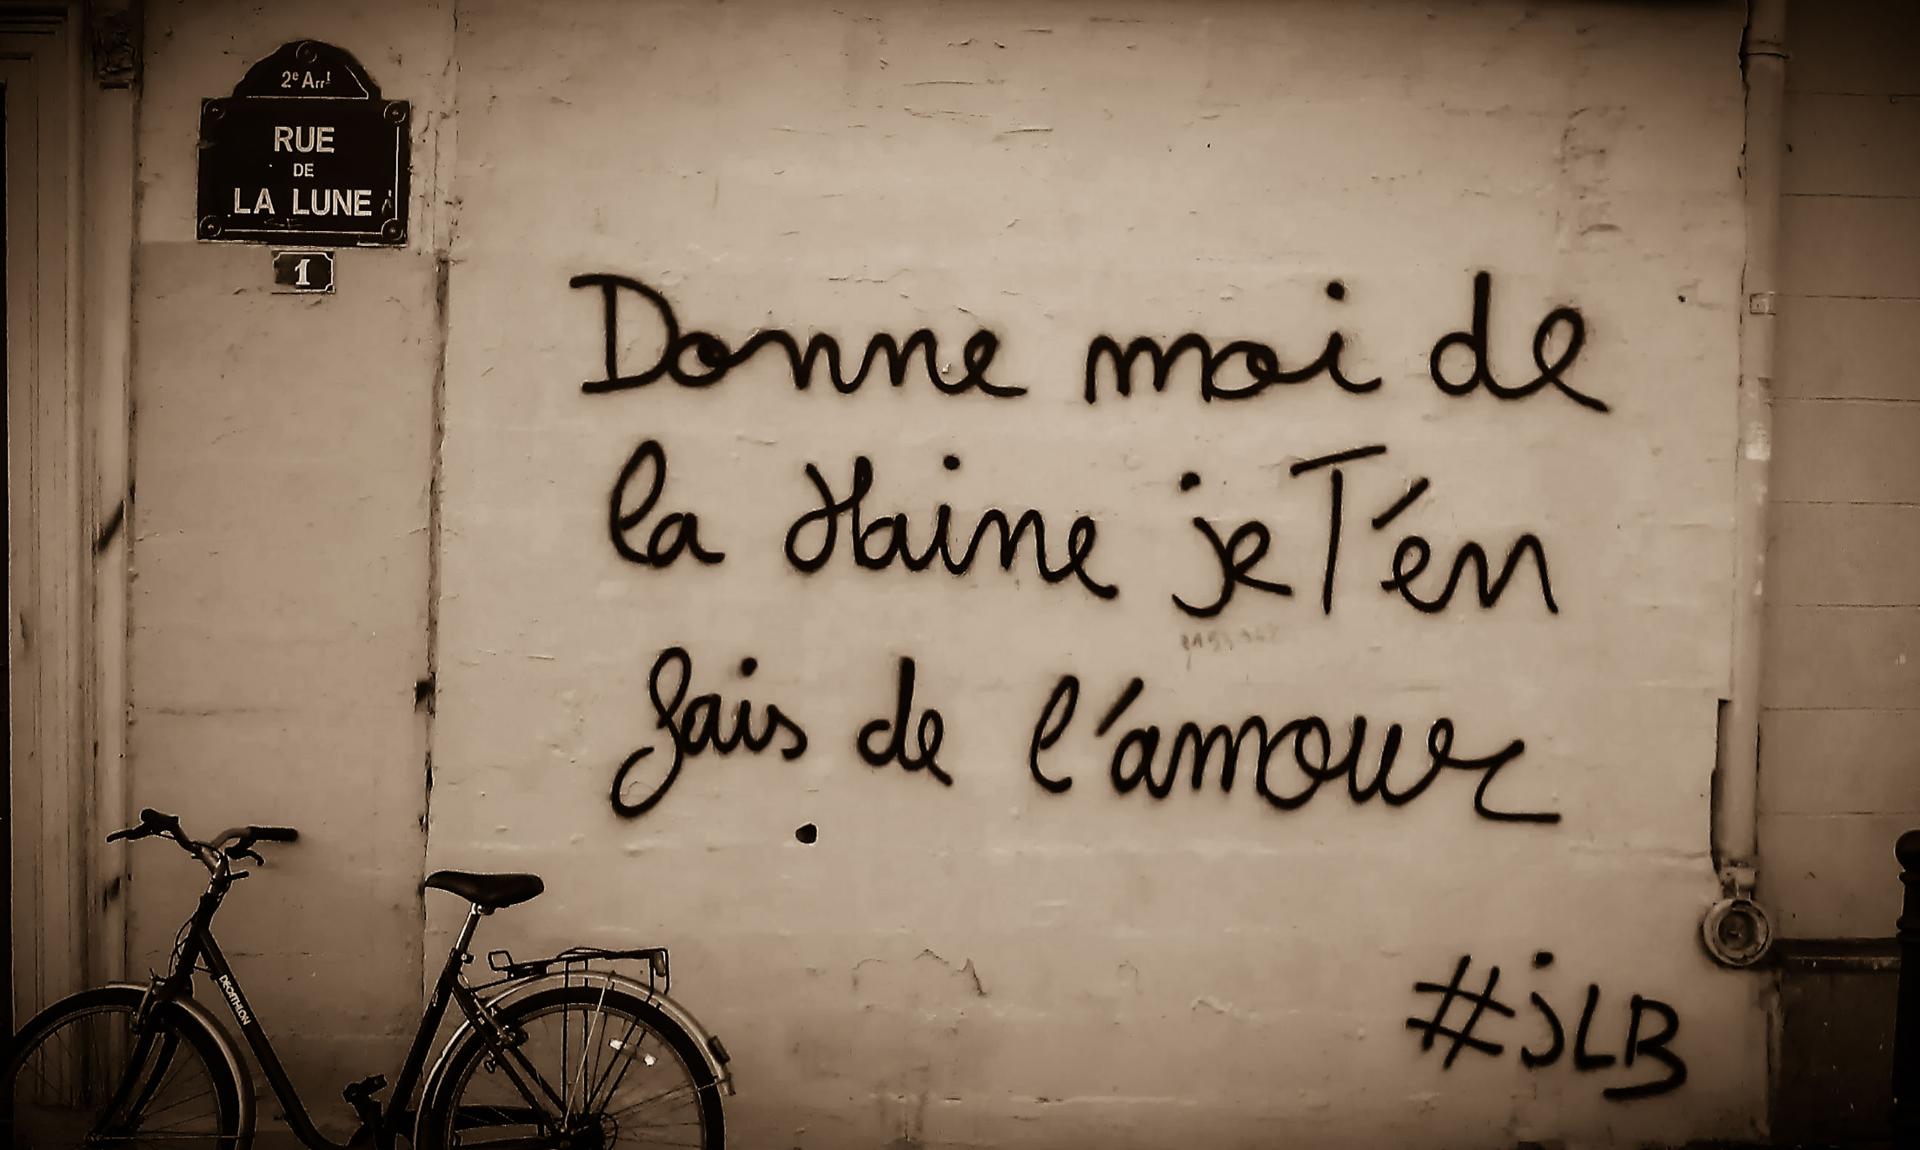 2e Arrt
RUE
DE
LA LUNE
1
Donne moi de
la Haine je T'en
fais de l'amour
#jLB
DECATHLON